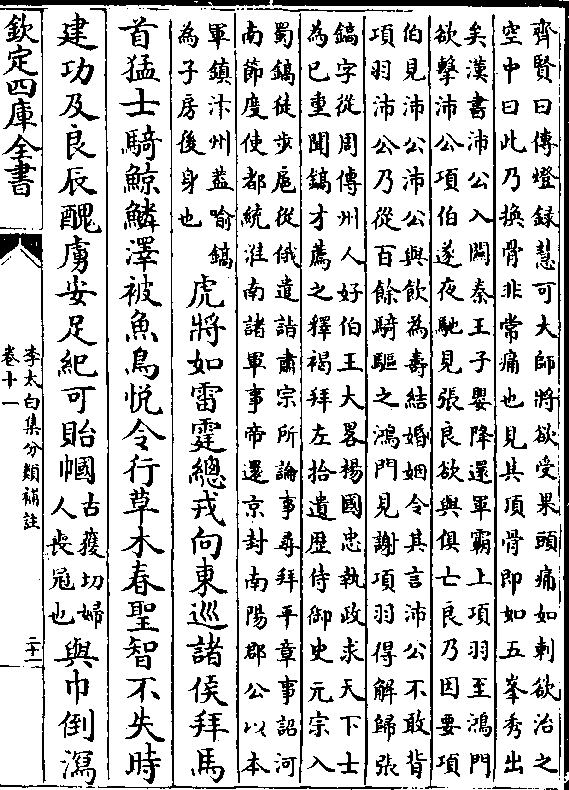 齊賢曰傳燈録慧可大師將欲受果頭痛如刺欲治之
空中曰此乃換骨非常痛也見其頂骨即如五峯秀出
矣漢書沛公入關秦王子嬰降還軍霸上項羽至鴻門
欲擊沛公項伯遂夜馳見張良欲與俱亡良乃因要項
伯見沛公沛公與飲為壽結婚姻令其言沛公不敢背
項羽沛公乃從百餘騎驅之鴻門見謝項羽得解歸張
鎬字從周傳州人好伯王大畧楊國忠執政求天下士
為已重聞鎬才薦之釋褐拜左拾遺歴侍御史元宗入
蜀鎬徒步扈從俄遣詣肅宗所論事尋拜平章事詔河
南節度使都統淮南諸軍事帝還京封南陽郡公以本
軍鎮汴州蓋喻鎬
為子房後身也
虎將如雷霆總戎向東巡諸侯拜馬
首猛士騎鯨鱗澤被魚鳥悅令行草木春聖智不失時
建功及良辰醜虜安足紀可貽幗
古獲切婦
人喪冠也
與巾倒瀉
欽定四庫全書
李太白集分類補註
卷十一
二十一